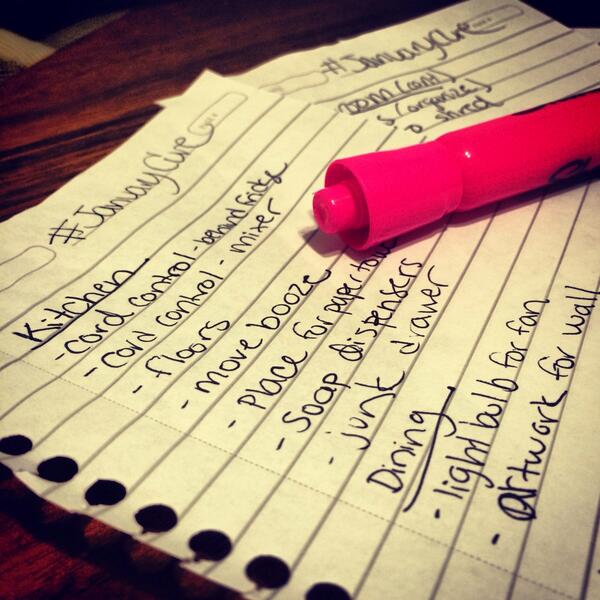 #JanuaryCure
Kitchen
- Cord control - behind fridge
- Cord control - mixer
- floors
- move booze
- Place for paper towe
- Soap dispensers
- junk drawer
Dining
- light bulb for fan
- Artwork for wall
#JanuaryCure
oom (cont)
s (organize)
o shred